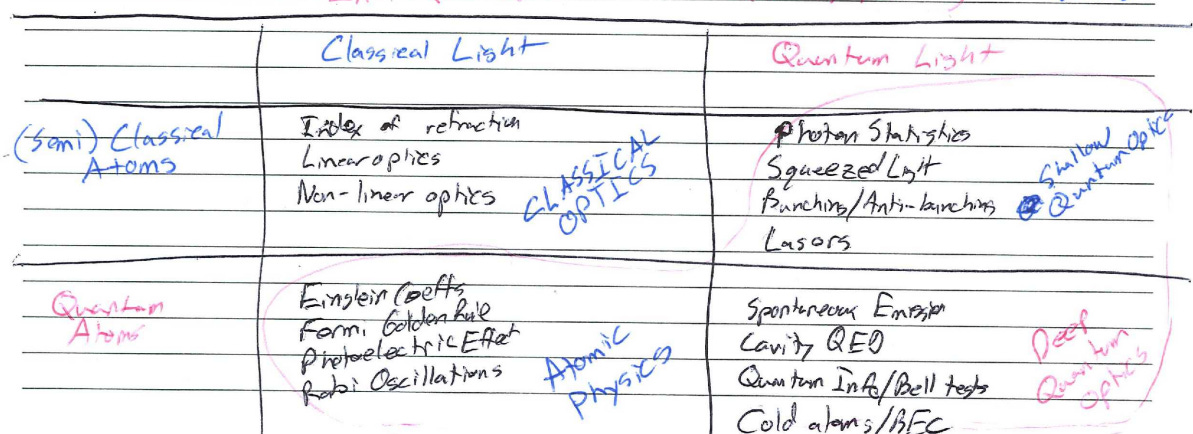 Classical Light
Quantum Light
(Semi) Classical
Atoms
Index of refraction
Linear optics
Non-linear optics
CLASSICAL
OPTICS
Photon Statistics
Squeezed Light
Bunching/Anti-bunching
Lasors
Shallow
Quantum Optics
Quantum
Atoms
Einstein Coeffs
Fermi Golden Rule
Photoelectric Effect
Rabi Oscillations
Atomic
Physics
Spontaneous Emission
Cavity QED
Quantum Info/Bell tests
Cold atoms/BEC
Deep
Quantum
Optics